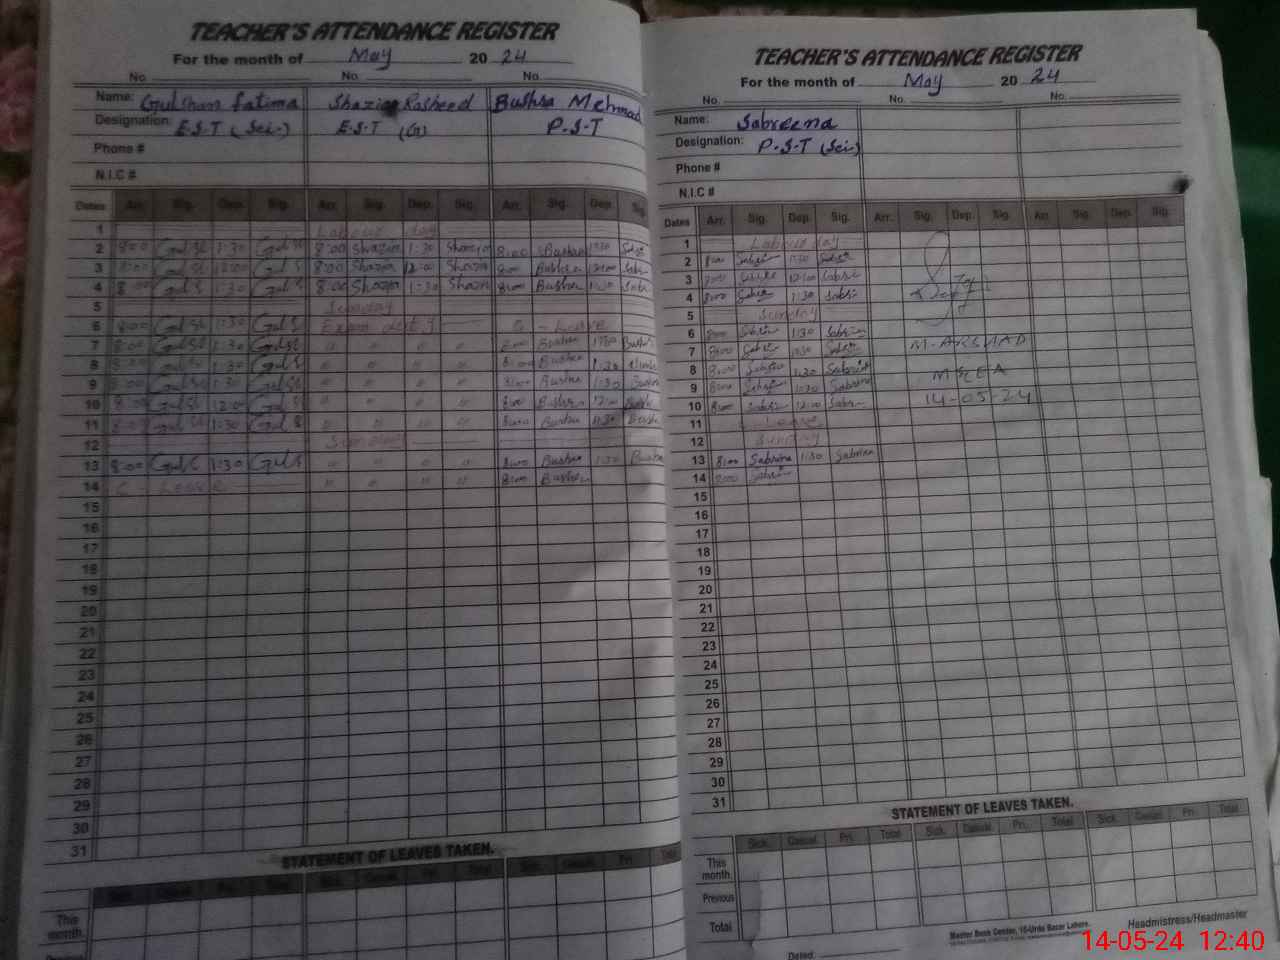 TEACHER'S ATTENDANCE REGISTER
For the month of May 2024
No. No. No.
Name: Gulshan Fatima Shazia Rasheed Bushra Mehmad
Designation: E.S.T (Sci-) E.S.T (G) P.S.T
Phone #
N.I.C #
Dates Arr. Sig. Dep. Sig. Arr. Sig. Dep. Sig. Arr. Sig. Dep. Sig.
1 Labour day
2 8:00 Gul 1:30 Gul S 8:00 Shazia 1:30 Shazia 8:00 Bushra 1:30
3 8:00 Gul 12:00 Gul S 8:00 Shazia 12:00 Shazia 8:00 Bushra 12:00
4 8:00 Gul S 1:30 Gul S 8:00 Shazia 1:30 Shazia 8:00 Bushra 1:30
5 Sunday
6 8:00 Gul 1:30 Gul S Exam duty Leave
7 8:00 Gul 1:30 Gul " " " " 8:00 Bushra 1:30 Bushra
8 8:00 Gul 1:30 Gul S " " " " 8:00 Bushra 1:30
9 8:00 Gul 1:30 Gul " " " " 8:00 Bushra 1:30 Bushra
10 8:00 Gul 12:0 Gul " " " " 8:00 Bushra 12:00 Bushra
11 8:00 Gul 1:30 Gul S " " " " 8:00 Bushra 1:30 Bushra
12 Sunday
13 8:00 Gul S 1:30 Gul S " " " " 8:00 Bushra 1:30 Bushra
14 C Leave " " " " 8:00 Bushra
15
16
17
18
19
20
21
22
23
24
25
26
27
28
29
30
31
STATEMENT OF LEAVES TAKEN.
Sick. Casual. Pri. Total Sick. Casual. Pri. Total Sick. Casual. Pri. Total
This month.
Previous
TEACHER'S ATTENDANCE REGISTER
For the month of May 2024
No. No. No.
Name: Sabreena
Designation: P.S.T (Sci-)
Phone #
N.I.C #
Dates Arr. Sig. Dep. Sig. Arr. Sig. Dep. Sig. Arr. Sig. Dep. Sig.
1 Labour day
2 8:00 Sabri 1:30 Sabri
3 8:00 12:00 Sabri
4 8:00 Sabri 1:30 Sabri
5 Sunday
6 8:00 Sabrin 1:30 Sabrina
7 8:00 Sabri 1:30 Sabri M. ARSHAD
8 8:00 Sabrin 1:30 Sabrin MSEEA
9 8:00 Sabri 1:30 Sabrina 14-05-24
10 8:00 Sabri 12:00 Sabrin
11 Leave
12 Sunday
13 8:00 Sabrina 1:30 Sabrina
14 8:00 Sabrin
15
16
17
18
19
20
21
22
23
24
25
26
27
28
29
30
31
STATEMENT OF LEAVES TAKEN.
Sick. Casual. Pri. Total Sick. Casual. Pri. Total Sick. Casual. Pri. Total
This month.
Previous
Total
Master Book Center, 16-Urdu Bazar Lahore.
Headmistress/Headmaster
Dated:
14-05-24 12:40